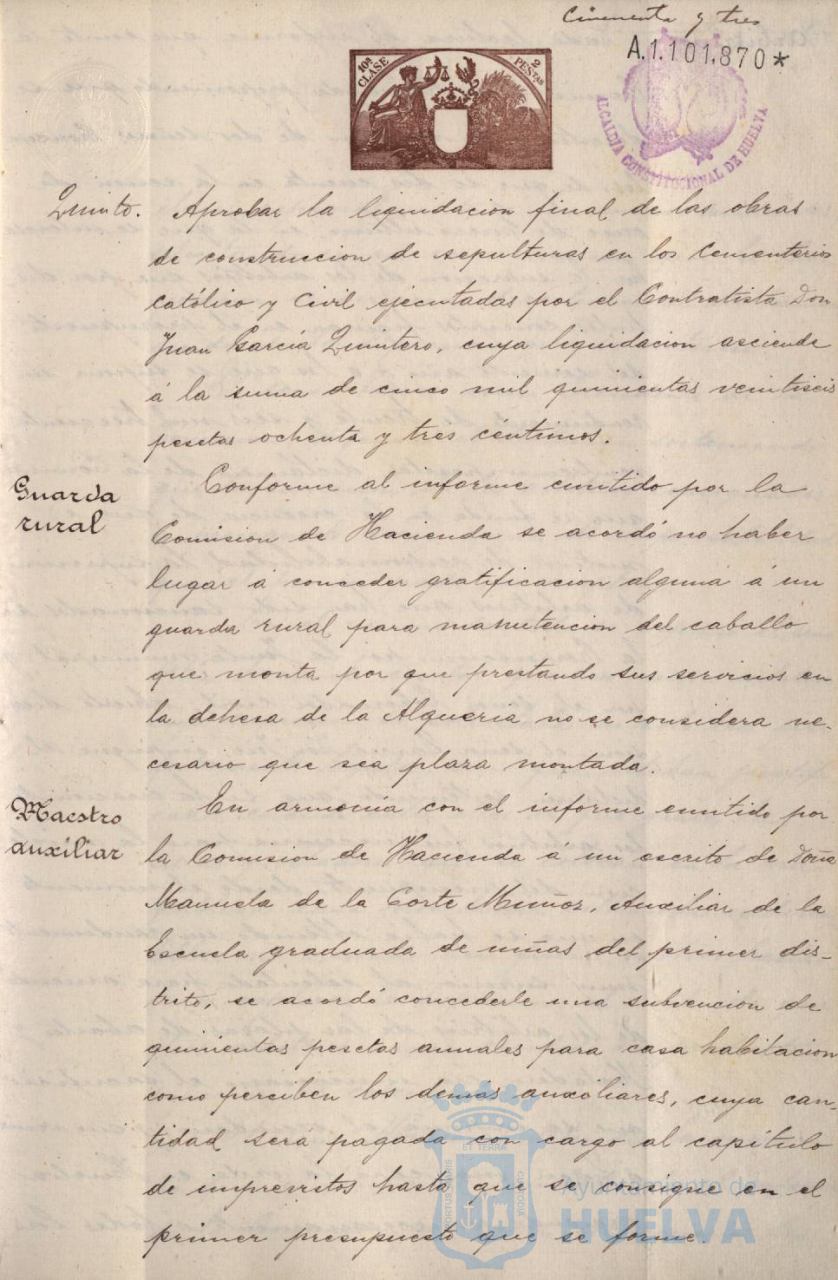 Cincuenta y tres
A.1.101.870*
10ª CLASE
2 PESTAS
ALCALDIA CONSTITUCIONAL DE HUELVA
Quinto. Aprobar la liquidacion final de las obras
de construccion de sepulturas en los Cementerios
Católico y Civil ejecutadas por el Contratista Don
Juan García Quintero, cuya liquidacion asciende
á la suma de cinco mil quinientas veintiseis
pesetas ochenta y tres céntimos.
Guarda
rural
Conforme al informe emitido por la
Comision de Hacienda se acordó no haber
lugar á conceder gratificacion alguna á un
guarda rural para manutencion del caballo
que monta por que prestando sus servicios en
la dehesa de la Alqueria no se considera ne-
cesario que sea plaza montada.
Maestro
auxiliar
En armonía con el informe emitido por
la Comision de Hacienda á un escrito de Doña
Manuela de la Corte Muñoz, Auxiliar de la
Escuela graduada de niñas del primer dis-
trito, se acordó concederle una subvencion de
quinientas pesetas anuales para casa habitacion
como perciben los demas auxiliares, cuya can-
tidad será pagada con cargo al capítulo
de imprevistos hasta que se consigne en el
primer presupuesto que se forme.
Ayuntamiento de
HUELVA